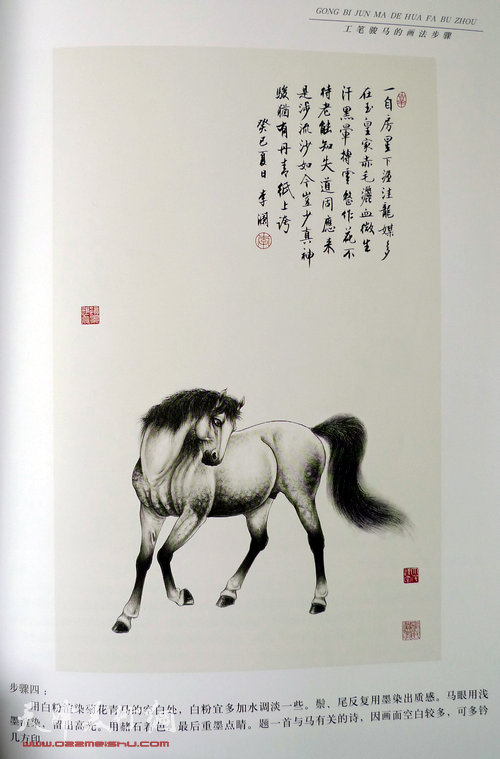 GONG BI JUN MA DE HUA FA BU ZHOU
工笔骏马的画法步骤
一自房星下渥洼龍媒多
在玉皇家赤毛灑血微生
汗黑暈摶雲整作花不
待老能知失道同應来
是涉流沙如今豈少真神
駿猶有丹青紙上誇
癸巳夏日 李瀾
步骤四：
用白粉渲染菊花青马的空白处，白粉宜多加水调淡一些。鬃、尾反复用墨染出质感。马眼用浅
墨渲染，留出高光。用赭石着色，最后重墨点睛。题一首与马有关的诗，因画面空白较多，可多钤
几方印。
www.022meishu.com